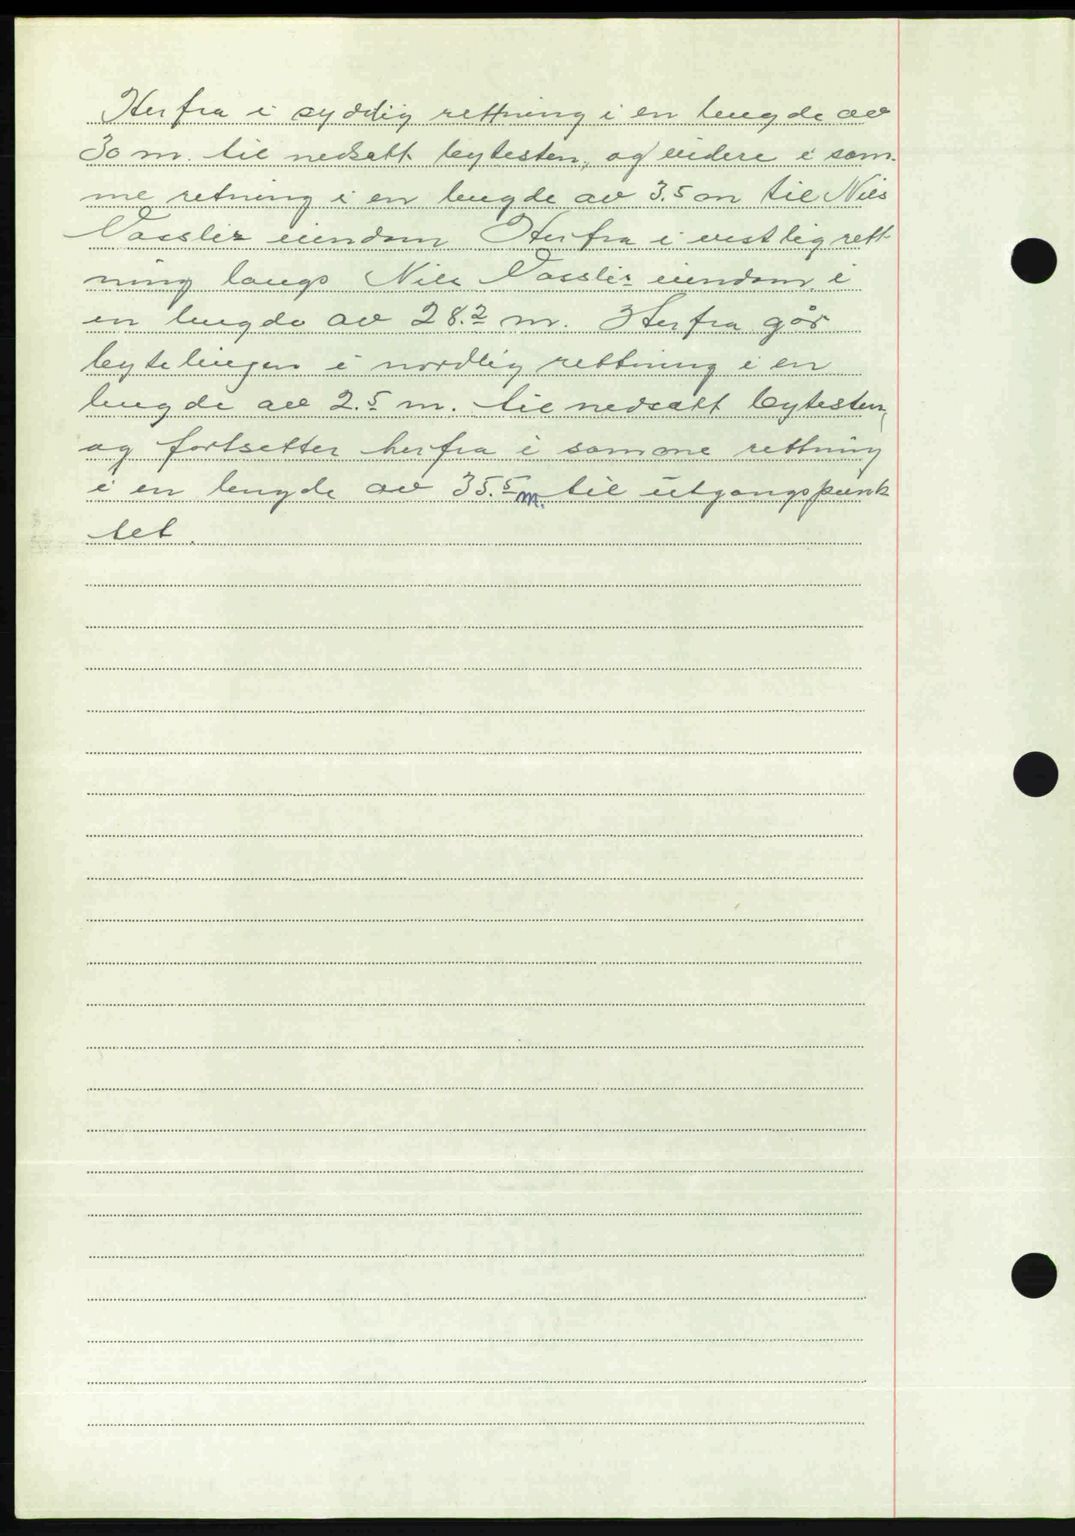 Herfra i sydlig rettning i en lengde av
30 m. til nedsatt bytesten, og videre i sam-
me retning i en lengde av 3.5 m til Nils
Vasslis eiendom Herfra i vestlig rett-
ning langs Nils Vasslis eiendom i
en lengde av 28.2 m. Herfra går
bytelinjen i nordlig rettning i en
lengde av 2.5 m. til nedsatt bytesten,
og fortsetter herfra i samme rettning
i en lengde av 35.5 m. til utgangspunk
tet.